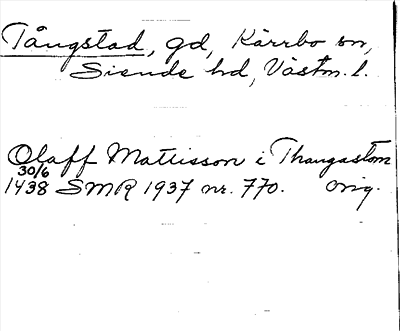 Tångstad, gd, Kärrbo sn,
Siende hd, Västm. l.
Olaff Mattisson i Thangastom
30/6
1438 SMR 1937 nr. 770. orig.